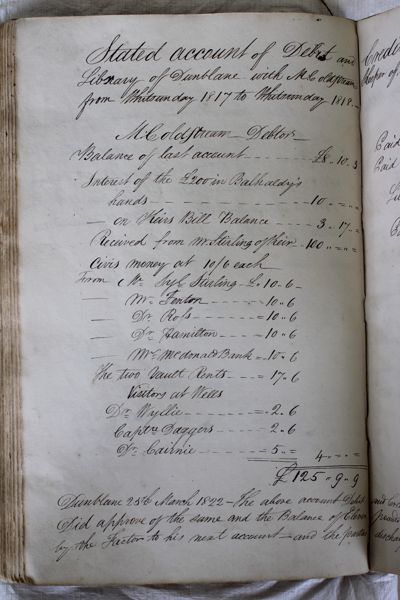 Stated account of Debit and
Library of Dunblane with M. Coldstream
from Whitsunday 1817 to Whitsunday 1818.
M. Coldstream Debtor
Balance of last account - - - - £8 . 10 . 3
Interest of the £200 in Balhaldy's
hands - - - - 10 . = . =
— on Keirs Bill Balance - - - 3 . 17 . =
Received from Mr Stirling of Keir . 100 . = . =
Civis money at 10/6 each
From Mr Syl. Stirling £ . 10 . 6
— Mr Fenton - - - = 10 . 6
— Dr Ross - - - = 10 . 6
— Dr Hamilton - - - = 10 . 6
— Mr McDonald Bank - = 10 . 6
The two Vault Rents - - - = 17 . 6
Visitors at Wells
Dr Wyllie - - - = 2 . 6
Captn Daggers - - - 2 . 6
Dr Cairnie - - - = 5 . = 4 . = . =
£125 . 9 . 9
Dunblane 25th March 1822 — The above account
Did approve of the same and the Balance of
by the Factor to his next account — and the
Paid
Paid